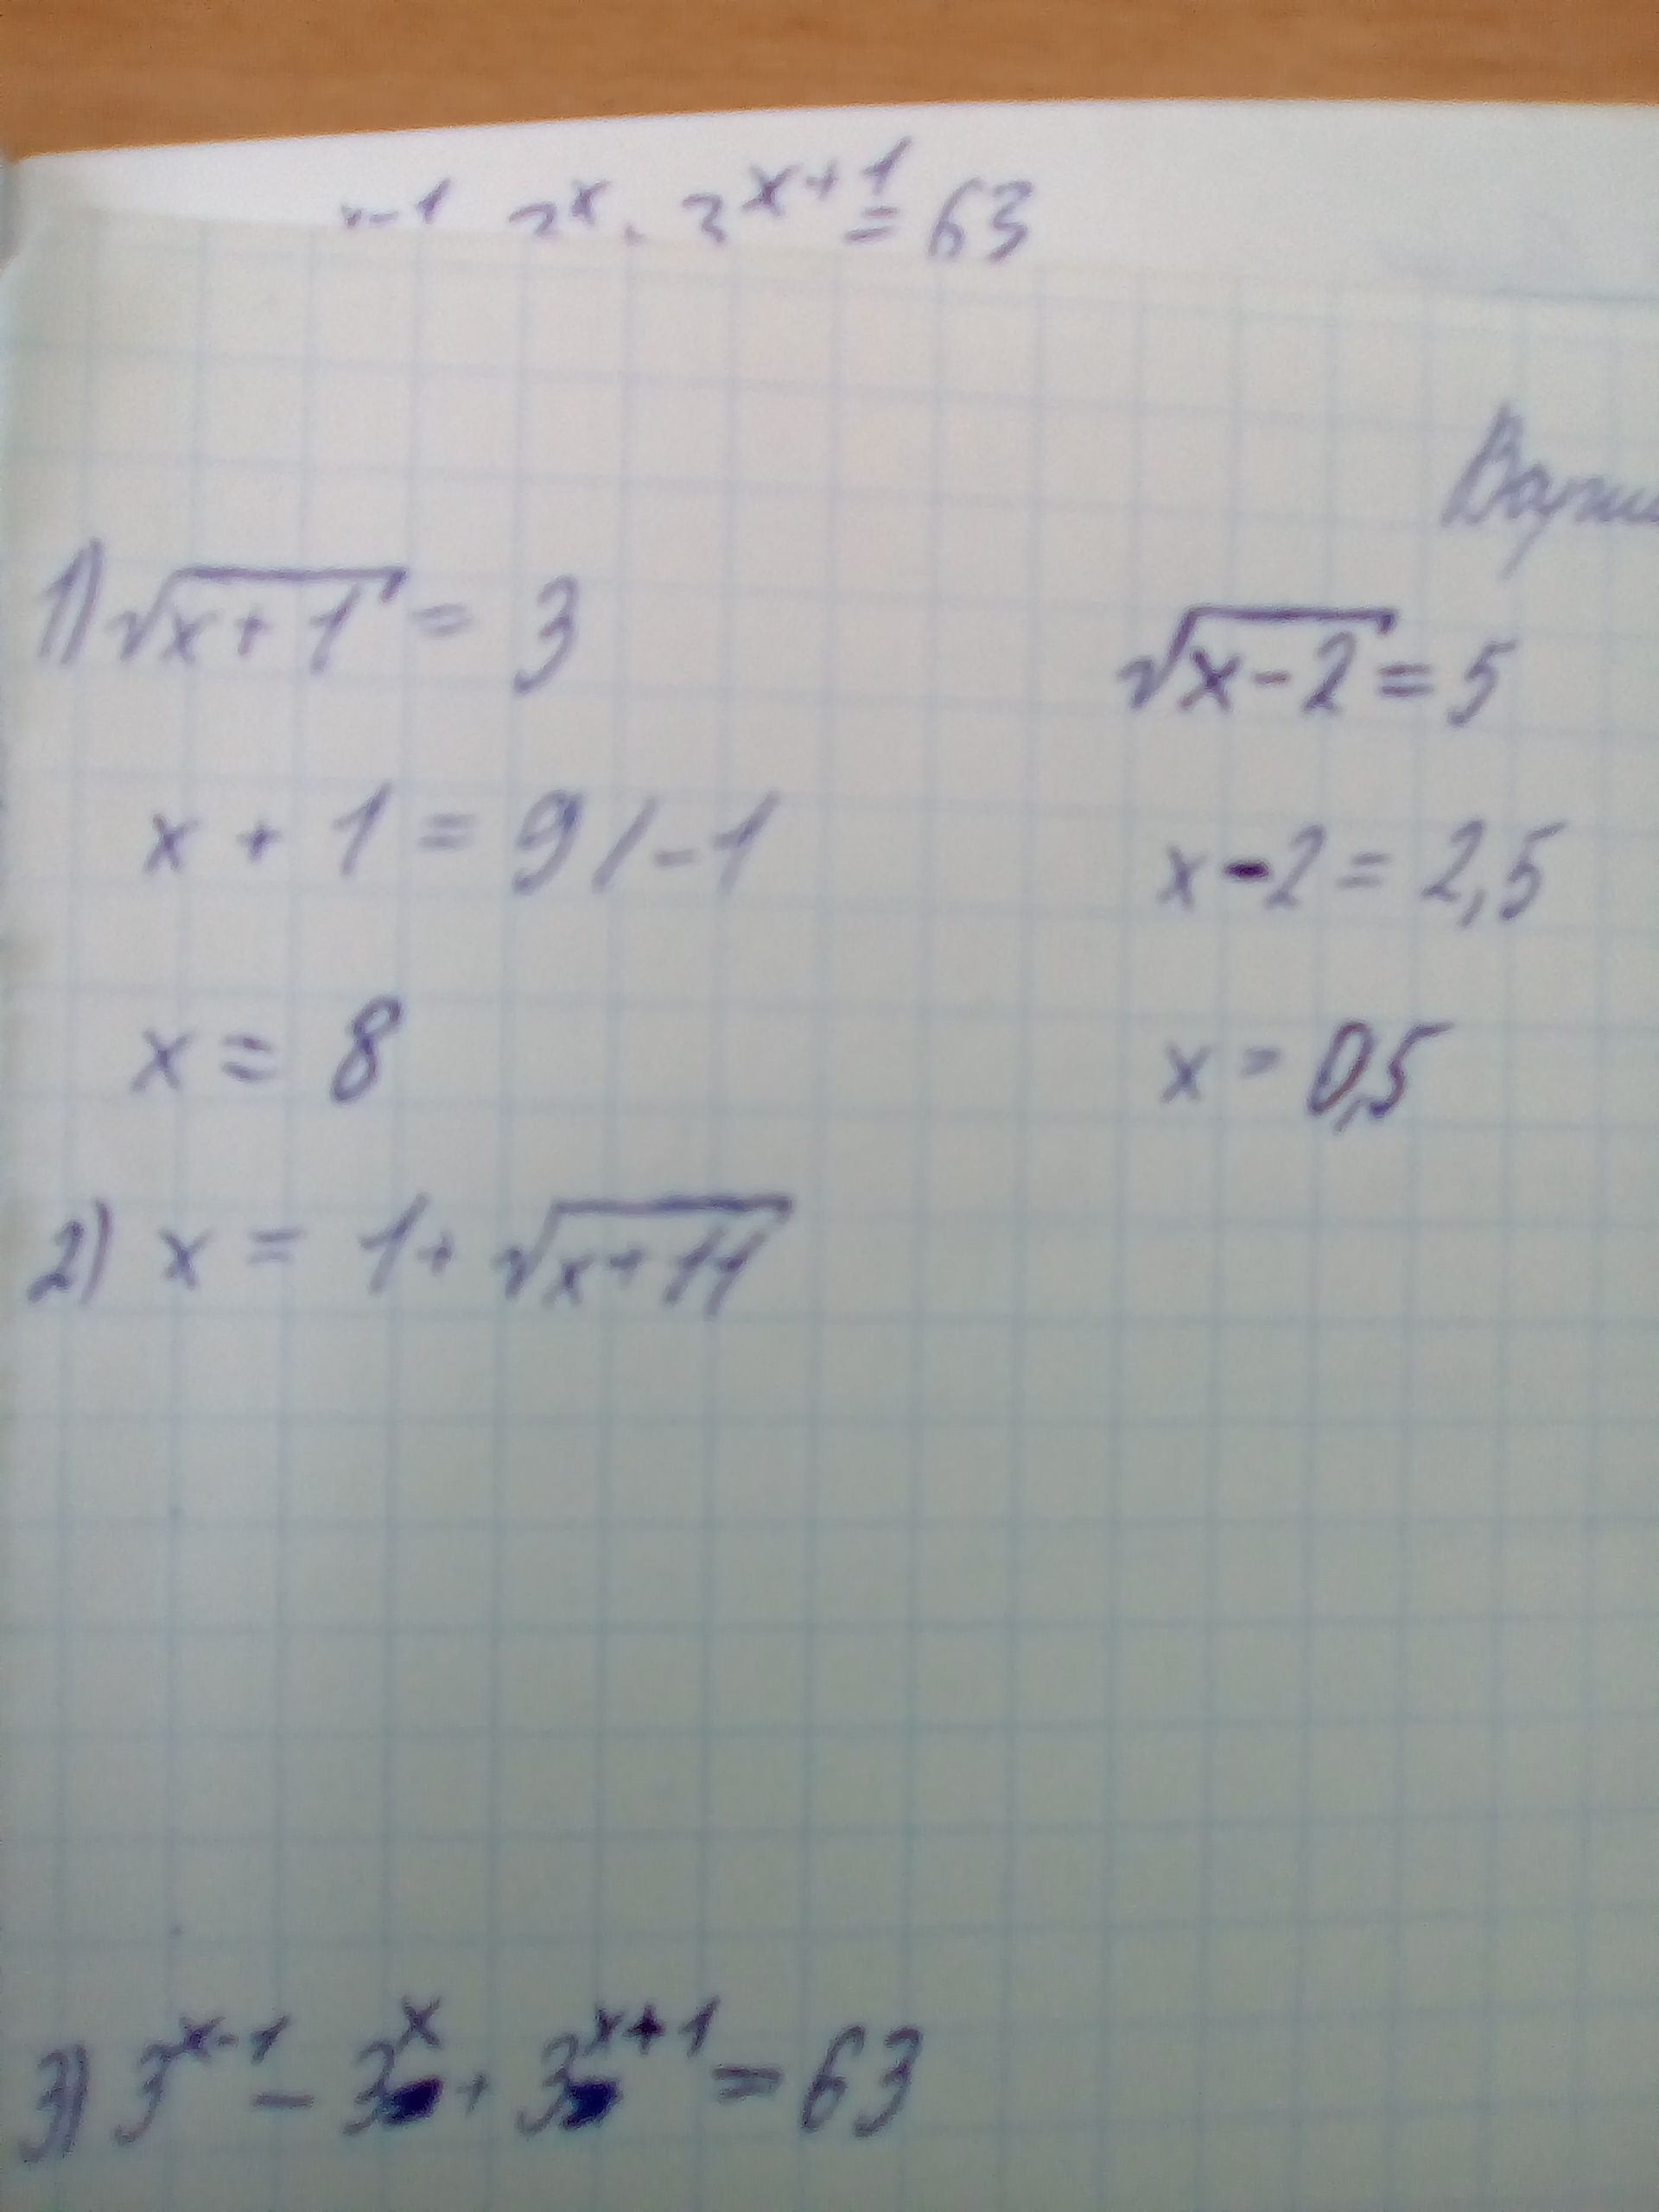 x-1 3ˣ + 3ˣ⁺¹ = 63
1) √(x+1) = 3
x + 1 = 9 / -1
x = 8
√(x-2) = 5
x - 2 = 2,5
x = 0,5
2) x = 1 + √(x+11)
3) 3ˣ⁻¹ - 3ˣ + 3ˣ⁺¹ = 63